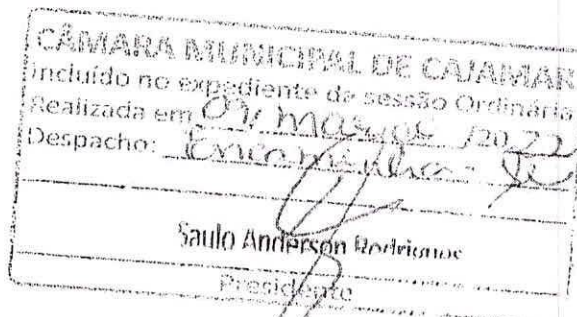 CÂMARA MUNICIPAL DE CAJAMAR
Incluído no expediente da sessão Ordinária
Realizada em /20 22
Despacho: Encaminha-se
Saulo Anderson Rodrigues
Presidente